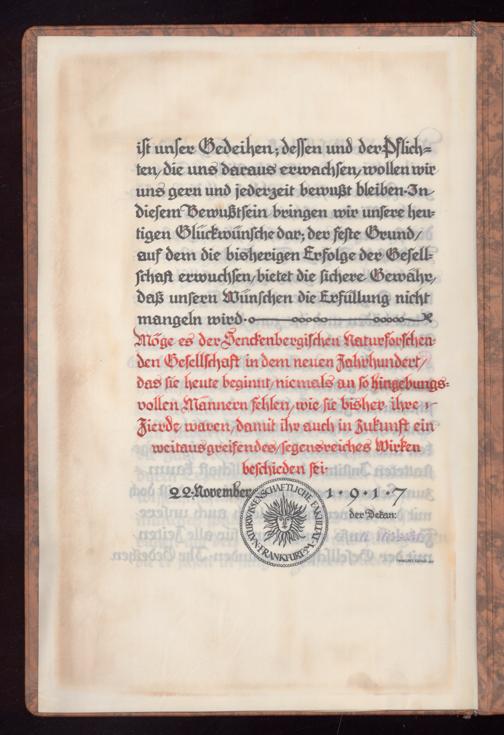 ist unser Gedeihen; dessen und der Pflich=
ten, die uns daraus erwachsen, wollen wir
uns gern und jederzeit bewußt bleiben. In
diesem Bewußtsein bringen wir unsere heu=
tigen Glückwünsche dar; der feste Grund,
auf dem die bisherigen Erfolge der Gesell=
schaft erwuchsen, bietet die sichere Gewähr,
daß unsern Wünschen die Erfüllung nicht
mangeln wird.
Möge es der Senckenbergischen Naturforschen=
den Gesellschaft in dem neuen Jahrhundert,
das sie heute beginnt, niemals an so hingebungs=
vollen Männern fehlen, wie sie bisher ihre
Zierde waren, damit ihr auch in Zukunft ein
weitausgreifendes, segensreiches Wirken
beschieden sei.
22. November 1·9·1·7
der Dekan:
NATURWISSENSCHAFTLICHE FAKULTÄT
FRANKFURT·M·